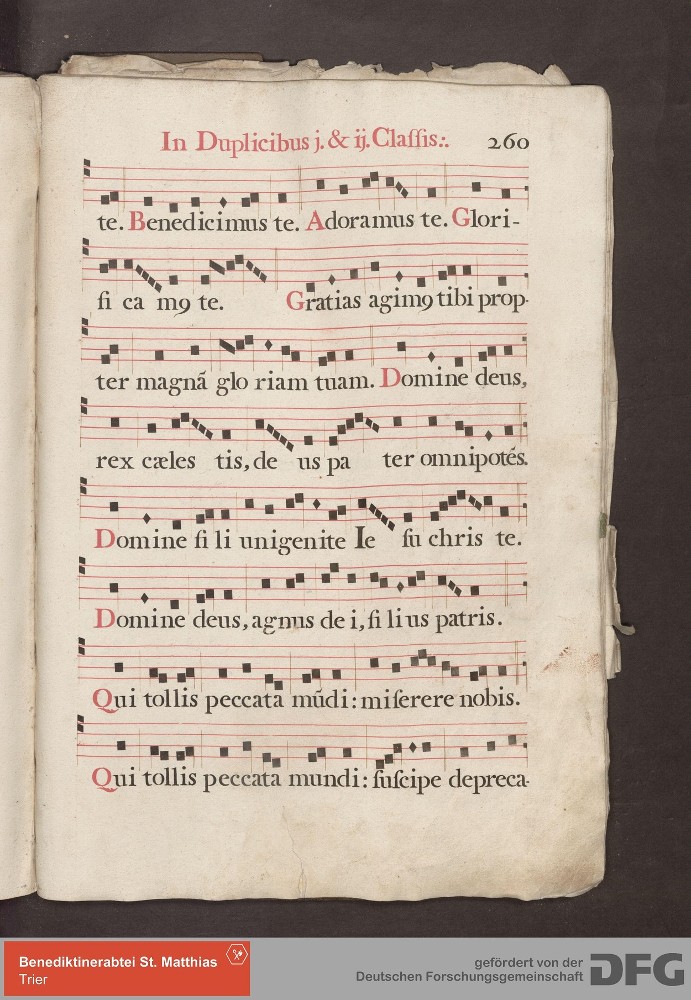 In Duplicibus j. & ij. Classis.:. 260
te. Benedicimus te. Adoramus te. Glori-
fi ca mꝯ te. Gratias agimꝯ tibi prop-
ter magnã glo riam tuam. Domine deus,
rex cæles tis, de us pa ter omnipotẽs.
Domine fi li unigenite Ie su chris te.
Domine deus, agnus de i, fi li us patris.
Qui tollis peccata mũdi: miserere nobis.
Qui tollis peccata mundi: suscipe depreca-
Benediktinerabtei St. Matthias
Trier
gefördert von der
Deutschen Forschungsgemeinschaft DFG